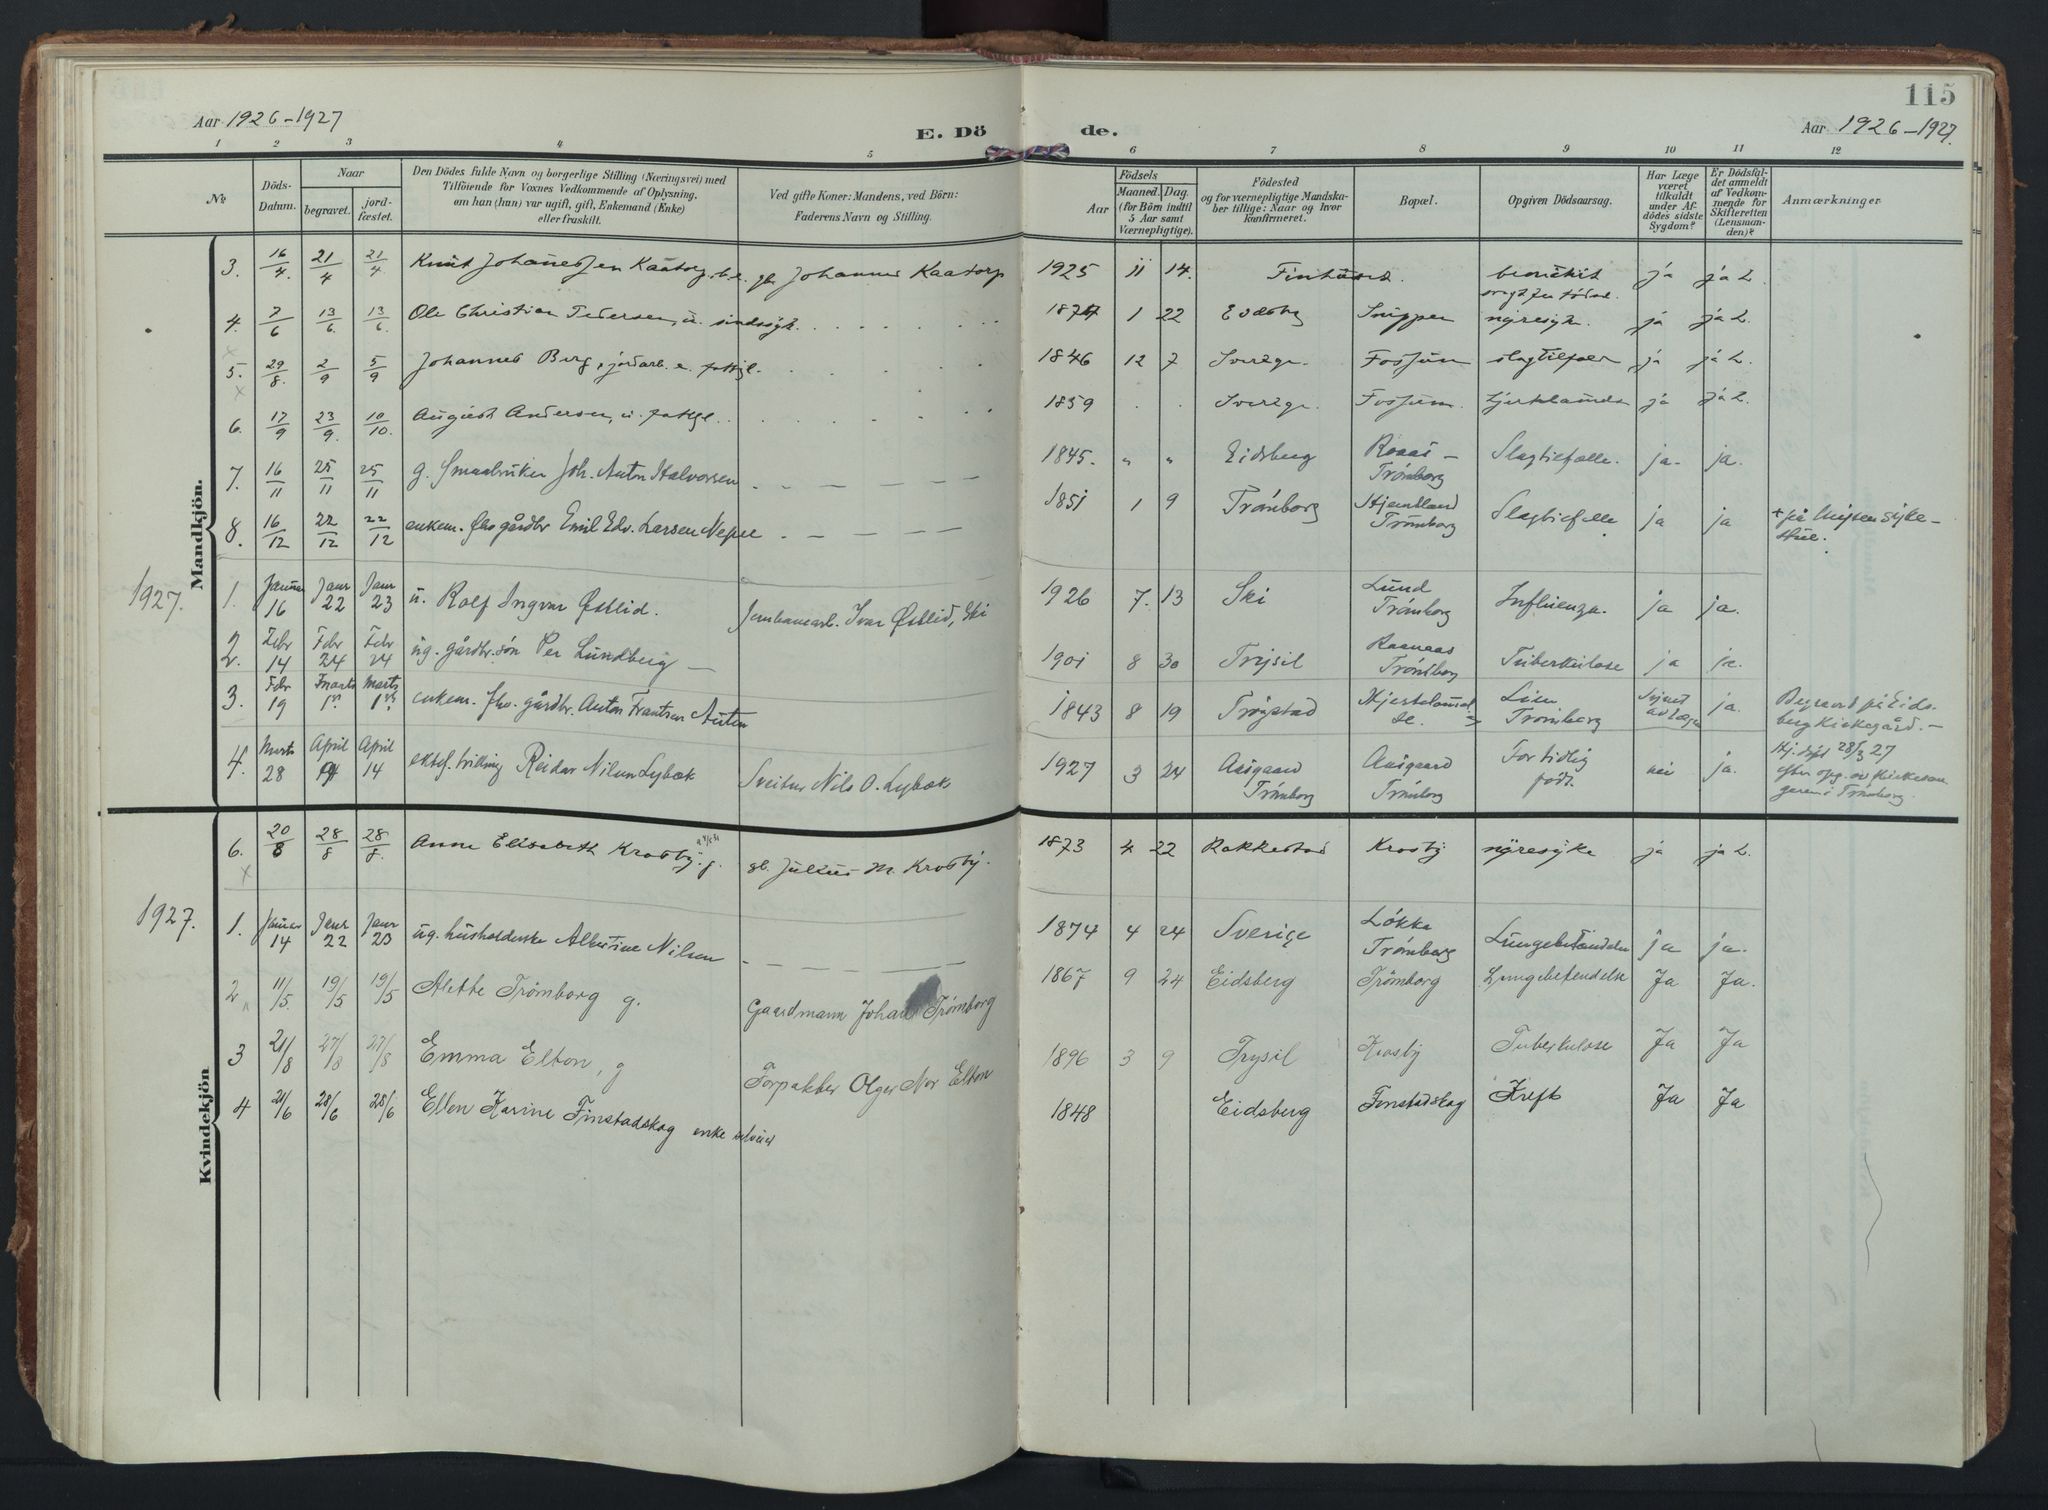 115
Aar 1926-1927
E. Dö
de.
Aar 1926-1927.
1 2 3 4 5 6 7 8 9 10 11 12
№
Döds-
Datum.
Naar
begravet.
jord-
fæstet.
Den Dödes fulde Navn og borgerlige Stilling (Næringsvei) med
Tilföiende for Voxnes Vedkommende af Oplysning,
om han (hun) var ugift, gift, Enkemand (Enke)
eller fraskilt.
Ved gifte Koner: Mandens, ved Börn:
Faderens Navn og Stilling.
Aar
Födsels
Maaned. Dag.
(for Börn indtil
5 Aar samt
Værnepligtige).
Födested
og for værnepligtige Mandska-
ber tillige: Naar og hvor
konfirmeret.
Bopæl.
Opgiven Dödsaarsag.
Har Læge
været
tilkaldt
under Af-
dödes sidste
Sygdom?
Er Dödsfal-
det anmeldt
af Vedkom-
mende for
Skifteretten
(Lensman-
den)?
Anmærkninger
Mandkjön.
3. 16/4 21/4 21/4 Knut Johannessen Kaatorp, Johannes Kaatorp 1925 11 14. ja ja L.
4. 7/6 13/6 13/6. Ole Christian Pedersen, u. sindssyk. 1874 1 22 Eidsberg nyresyke. ja ja L.
5. 29/8. 2/9 5/9 Johannes Berg, jordarb. e. 1846 12 7 Sverige. Fossum slagtilfælde ja ja L.
6. 17/9 23/9. 10/10. August Andersen, u. 1859 Sverige. Fossum. ja ja L.
7. 16/11 25/11 25/11 g. Smaabruker Joh. Anton Halvorsen 1845. " " Eidsberg Raaas - Trömborg Slagtilfælle. ja. ja.
8. 16/12 22/12 22/12 enkem. fhv gårdbr Emil Edv. Larsen 1851 1 9 Trömborg Trömborg Slagtilfelle ja ja + på Mysen syke-
hus.
1927.
1. Januar 16 Janr 22 Janr 23 u. Rolf Ingvar Østlid. Jernbanearb. Ivar Østlid, Ski 1926 7. 13 Ski Lund Trömborg Influenza. ja ja.
2. Febr 14 Febr 24 Febr 24 ug. gårdbr. sön Per Lundberg — 1901 8 30 Trysil Trömborg Tuberkulose ja ja.
3. Febr 19 Marts 1. Marts 1. enkem. fhv. gårdbr. Anton Frantsen 1843 8 19 Trøgstad ja. Begravet på Eids-
berg Kirkegård. —
4. Marts 28 April 14 April 14 ektef. tvilling Reidar Nilsen Lybæk Sveitser Nils O. Lybæk 1927 3 24 Aasgaard Trömborg Aasgaard Trömborg For tidlig født. nei ja. Hj. döpt 28/3 27
efter opg. av Kirkesan-
geren i Trömborg.
Kvindekjön
6. 20/8 28/8 28/8. Anne Elisabeth Krosby. g. Julius M. Krosby. 1873 4 22 Rakkestad Krosby nyresyke ja ja L.
1927.
1. Januar 14 Janr 22 Janr 23 ug. husholderske Albertine Nilsen 1874 4 24 Sverige Løkka Trömborg Lungebetændelse ja ja.
2 11/5 19/5 19/5 Alette Trömborg g. Gaardmann Johan Trømborg 1867 9 24 Eidsberg Trømborg Lungebetendelse Ja Ja.
3 21/8 27/8 27/8 Emma Elton, g Forpakter Olger Elton 1896 3 9 Trysil Krosby Tuberkulose Ja Ja
4 21/6 28/6 28/6 Ellen Karine Finstadskog enke 1848 Eidsberg Finstadskog Kreft Ja Ja